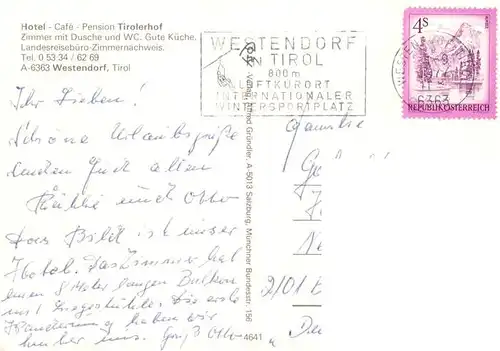 Hotel - Café - Pension Tirolerhof
Zimmer mit Dusche und WC. Gute Küche.
Landesreisebüro-Zimmernachweis.
Tel. 0 53 34 / 62 69
A-6363 Westendorf, Tirol
WESTENDORF
IN TIROL
800 m
LUFTKURORT
INTERNATIONALER
WINTERSPORTPLATZ
6363
4 S
REPUBLIK ÖSTERREICH
Ihr Lieben!
Schöne Urlaubsgrüße
senden Euch allen
Käthe und Otto
Das Bild ist unser
Hotel. Das Zimmer hat
einen 8 Meter langen Balkon
mit Liegestühle. Die erste
Wanderung haben wir
hinter uns. Gruß Otto
Familie
Gründler, A-5013 Salzburg, Münchner Bundesstr. 156
4641